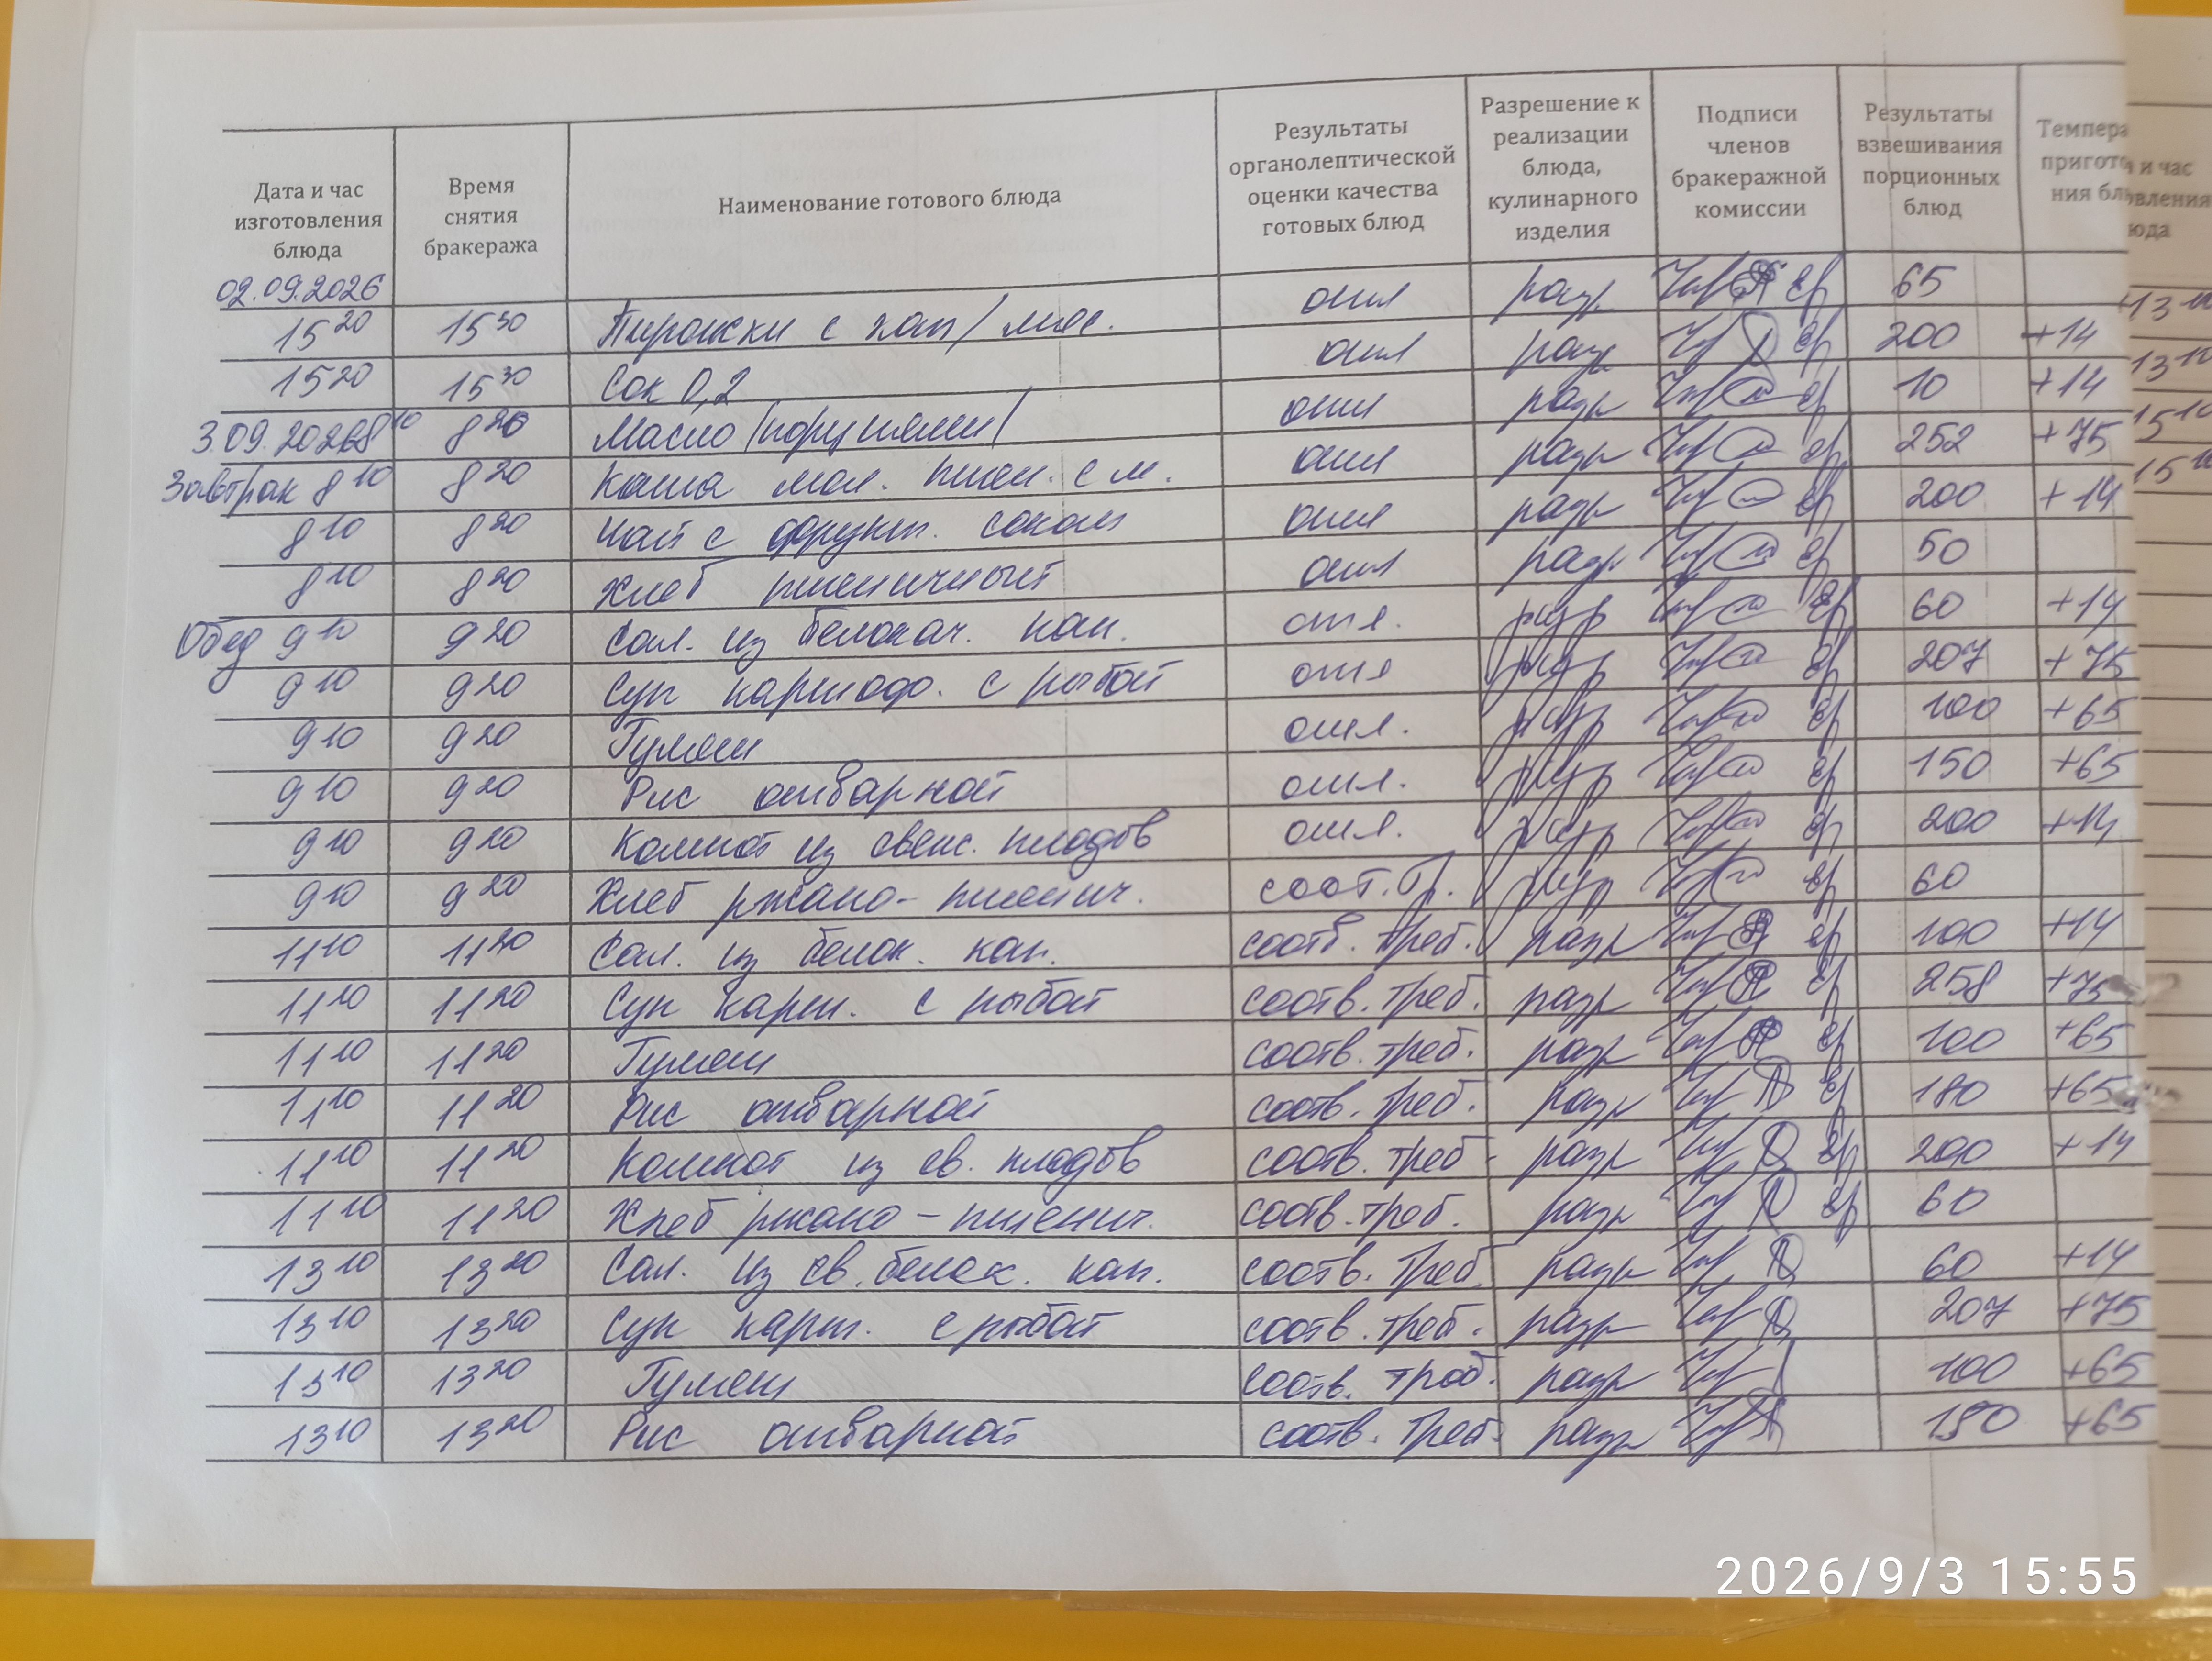 Дата и час изготовления блюда
Время снятия бракеража
Наименование готового блюда
Результаты органолептической оценки качества готовых блюд
Разрешение к реализации блюда, кулинарного изделия
Подписи членов бракеражной комиссии
Результаты взвешивания порционных блюд
Темпера пригото ния бл
и час
овления
юда
02.09.2026
15 20 15 30 Пирожки с кап/ мяс. отл разр 65
15 20 15 30 Сок 0,2 отл разр 200 +14
3.09.2026 8 10 8 20 Масло /порциями/ отл разр 10 +14
Завтрак 8 10 8 20 Каша мол. пшен. с м. отл разр 252 +75
8 10 8 20 Чай с фрукт. соком отл разр 200 +14
8 10 8 20 Хлеб пшеничный отл разр 50
Обед 9 10 9 20 Сал. из белокач. кап. отл. разр 60 +14
9 10 9 20 Суп картоф. с рыбой отл разр 207 +75
9 10 9 20 Гуляш отл. разр 100 +65
9 10 9 20 Рис отварной отл. разр 150 +65
9 10 9 20 Компот из свеж. плодов отл. разр 200 +14
9 10 9 20 Хлеб ржано-пшенич. соот. тр. разр 60
11 10 11 20 Сал. из белок. кап. соотв. треб. разр 100 +14
11 10 11 20 Суп карт. с рыбой соотв. треб. разр 258 +75
11 10 11 20 Гуляш соотв. треб. разр 100 +65
11 10 11 20 Рис отварной соотв. треб. разр 180 +65
11 10 11 20 Компот из св. плодов соотв. треб. разр 200 +14
11 10 11 20 Хлеб ржано-пшенич. соотв. треб. разр 60
13 10 13 20 Сал. из св. белок. кап. соотв. треб. разр 60 +14
13 10 13 20 Суп карт. с рыбой соотв. треб. разр 207 +75
13 10 13 20 Гуляш соотв. треб. разр 100 +65
13 10 13 20 Рис отварной соотв. треб. разр 150 +65
13 10
13 10
15 10
15 10
2026/9/3 15:55